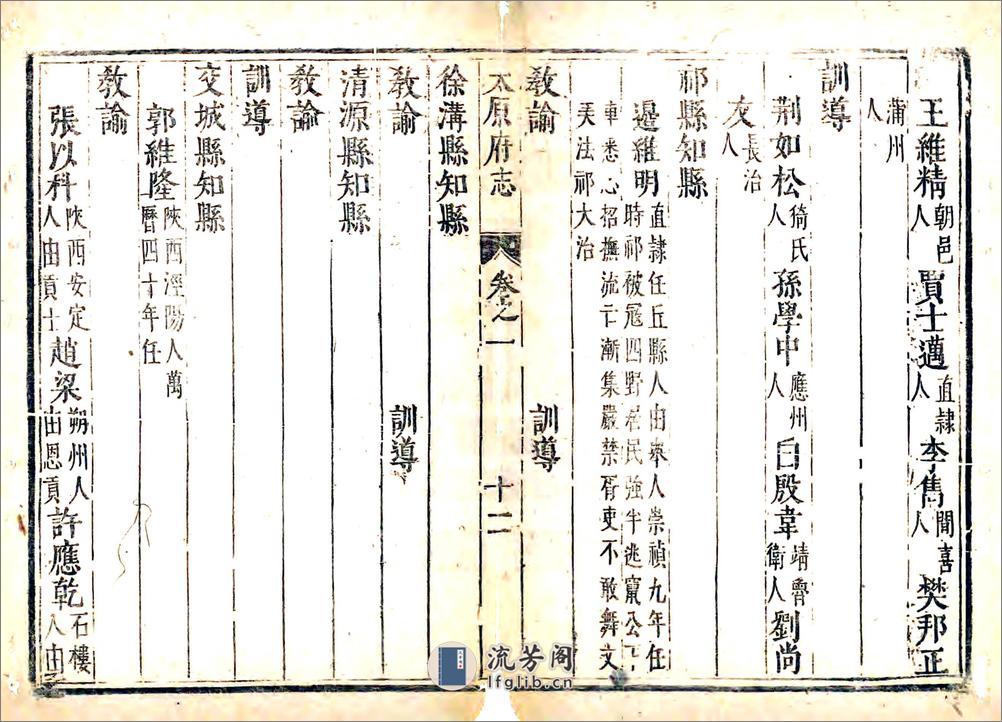 王維精朝邑人賈士邁直隷人李雋聞喜人樊邦正
蒲州人
訓導
荆如松猗氏人孫學中應州人白殷韋靖魯衛人劉尚
友長治人
祁縣知縣
邊維明直隷任丘縣人由舉人崇禎九年任
時祁被寇四野居民強半逃竄公下
車悉心招撫流亡漸集嚴禁胥吏不敢舞文
弄法祁大治
教諭 訓導
太原府志 卷之一 十二
徐溝縣知縣
教諭 訓導
清源縣知縣
教諭
訓導
交城縣知縣
郭維隆陜西涇陽人萬曆四十年任
教諭
張以科陜西安定人由貢士趙梁朔州人由恩貢許應乾石樓人由
流芳阁
lfglib.cn